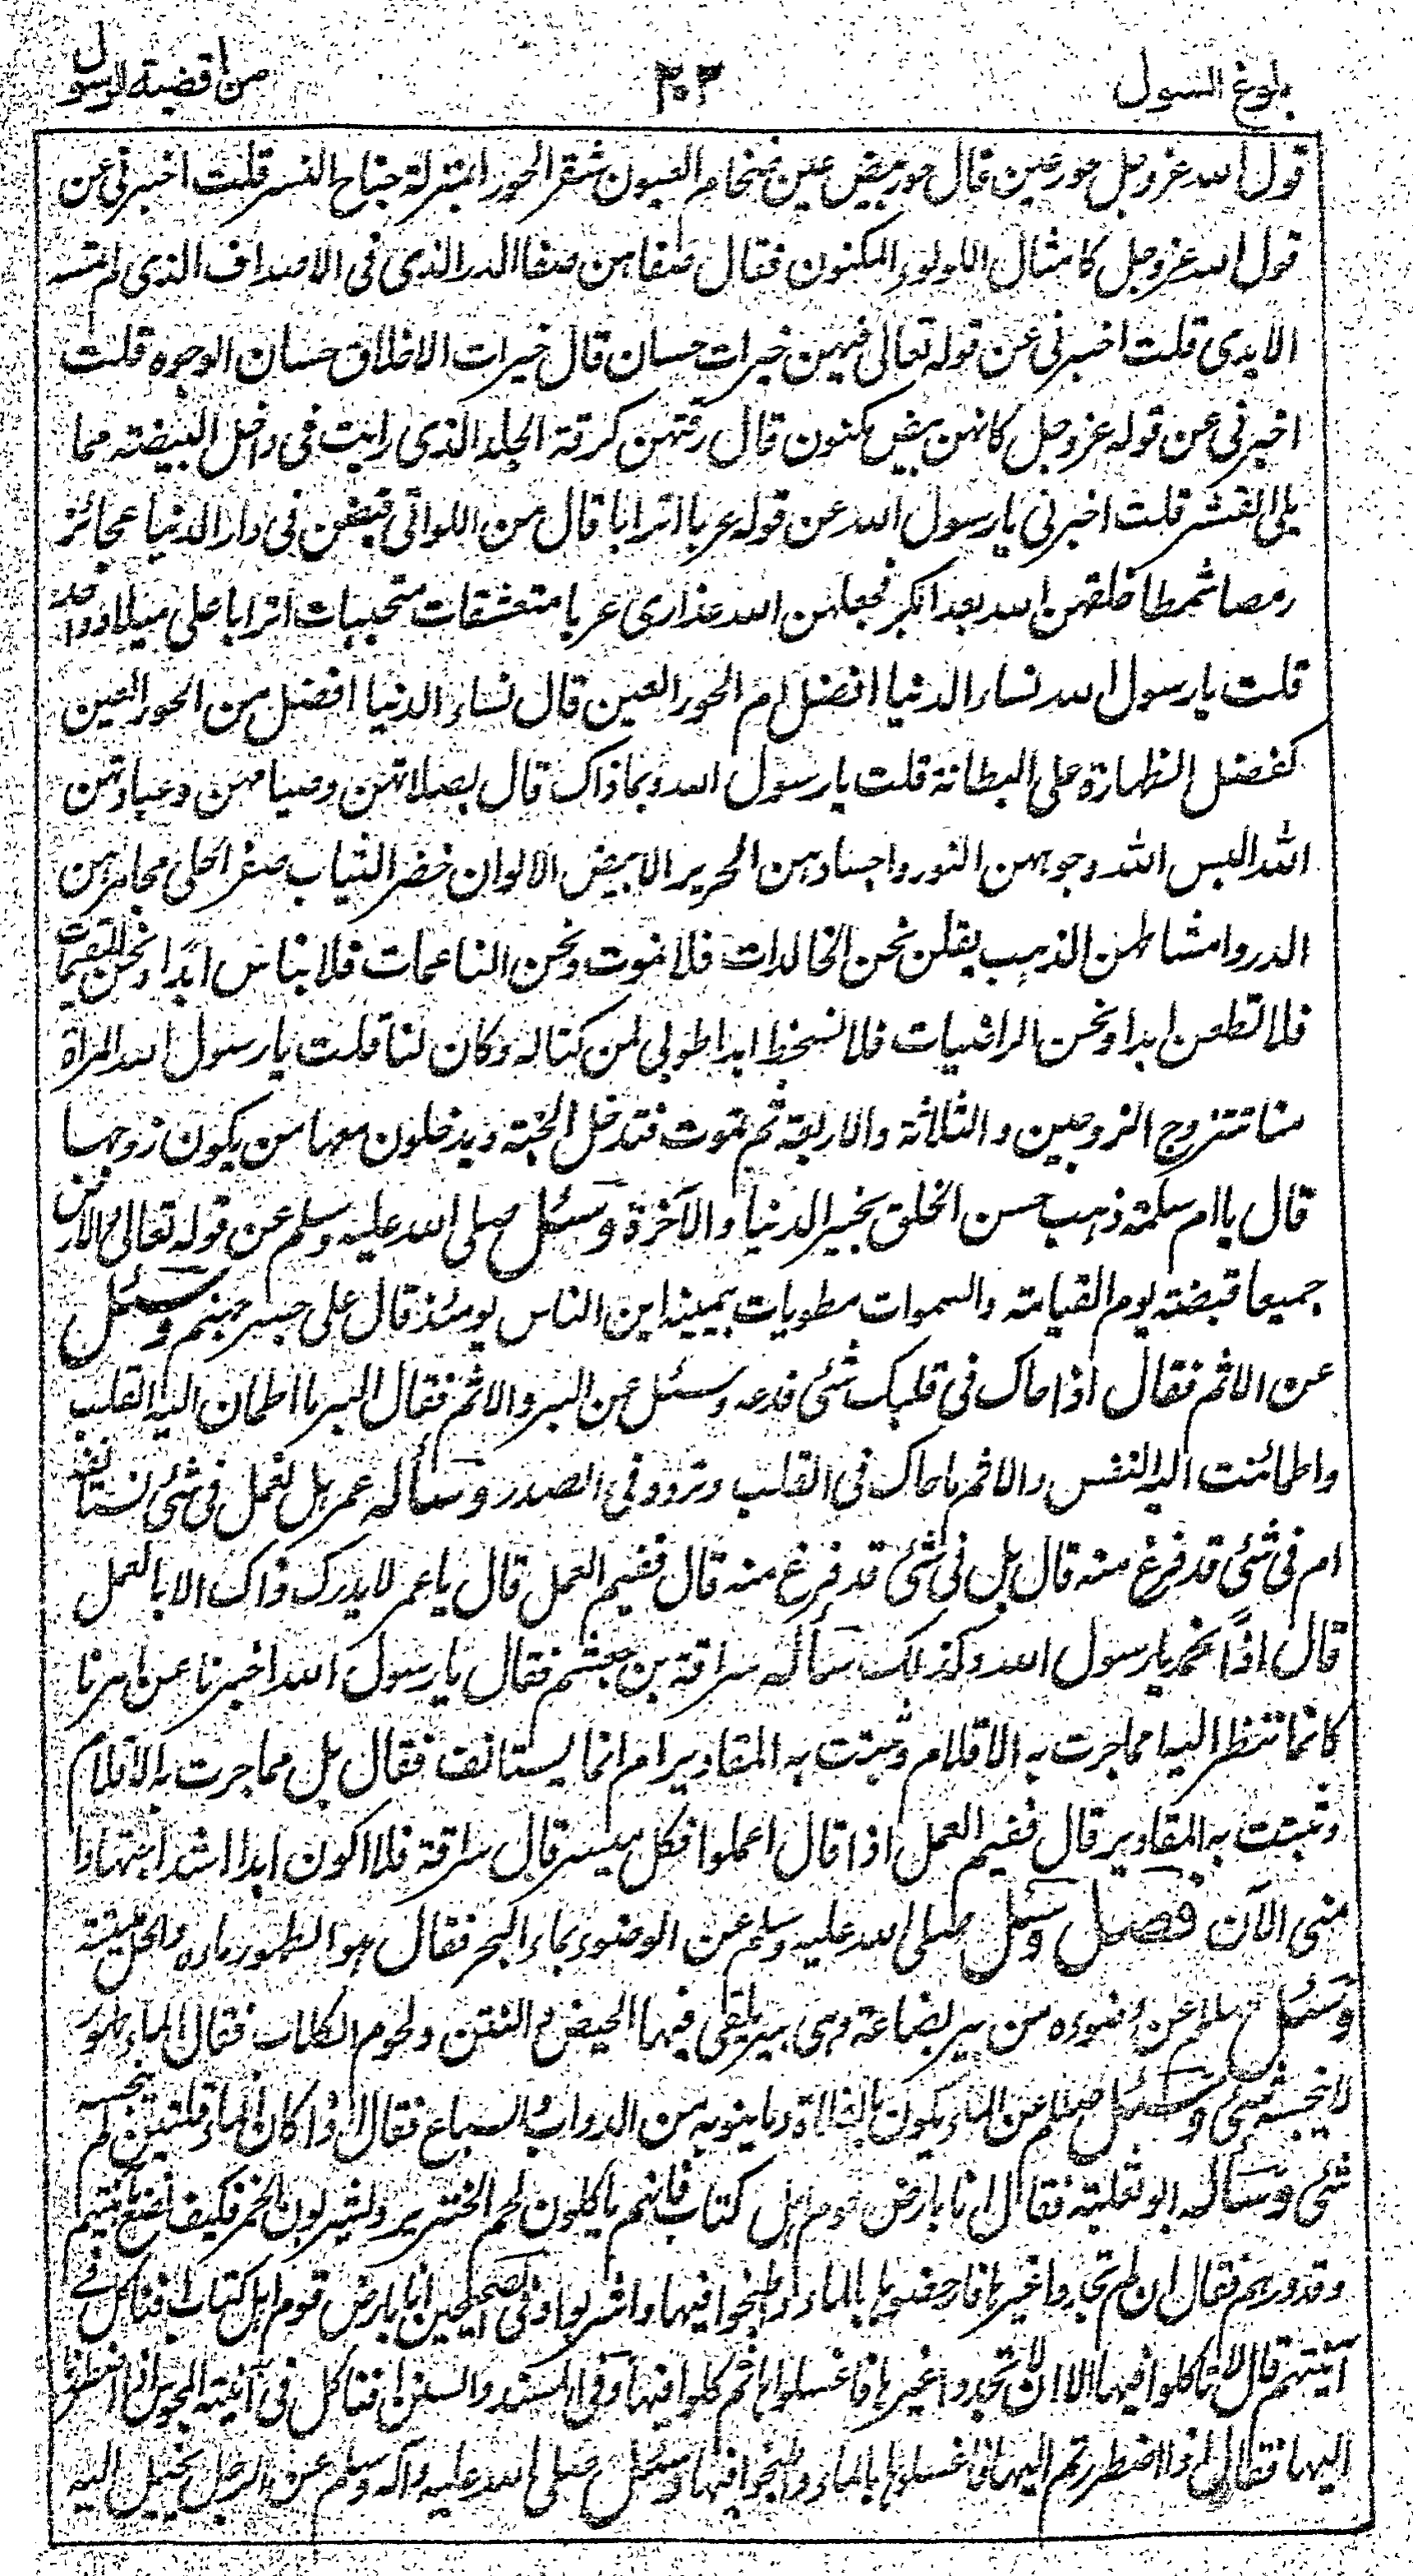 بلوغ السول ٢٠٢ من اقضية الرسول
قول الله عز وجل حور عين قال حور بيض عين ضخام العيون شقر الحورا بمنزلة جناح النسر قلت اخبرنى عن
قول الله عز وجل كامثال اللولوء المكنون فقال صفاهن صفا الدر الذى فى الاصداف الذى لم تمسه
الايدى قلت اخبرنى عن قوله تعالى فيهن خيرات حسان قال خيرات الاخلاق حسان الوجوه قلت
اخبرنى عن قوله عز وجل كانهن بيض مكنون قال رقتهن كرقة الجلد الذى رايت فى داخل البيضته مما
يلى القشر قلت اخبرنى يا رسول الله عن قوله عربا اترابا قال هن اللواتى قبضن فى دار الدنيا عجائز
رمصا شمطا خلقهن الله بعد الكبر فجعلهن الله عذارى عربا متعشقات متحببات اترابا على ميلاد واحد
قلت يا رسول الله نساء الدنيا افضل ام الحور العين قال نساء الدنيا افضل من الحور العين
كفضل الظهارة على البطانة قلت يا رسول الله وبما ذاك قال بصلاتهن وصيامهن وعبادتهن
الله البس الله وجوههن النور واجسادهن الحرير الابيض الالوان خضر الثياب صفر الحلى مجامرهن
الدر وامشاطهن الذهب يقلن نحن الخالدات فلا نموت ونحن الناعمات فلا نباس ابدا ونحن المقيمات
فلا نظعن ابدا ونحن الراضيات فلا نسخط ابدا طوبى لمن كنا له وكان لنا قلت يا رسول الله المراة
منا تتزوج الزوجين والثلاثة والاربعة ثم تموت فتدخل الجنة ويدخلون معها من يكون زوجها
قال يا ام سلمة ذهب حسن الخلق بخير الدنيا والآخرة وسئل صلى الله عليه وسلم عن قوله تعالى والارض
جميعا قبضته يوم القيامته والسموات مطويات بيمينه اين الناس يومئذ قال على جسر جهنم وسئل
عن الاثم فقال اذا حاك فى قلبك شئ فدعه وسئل عن البر والاثم فقال البر ما اطمان اليه القلب
واطمانت اليه النفس والاثم ما حاك فى القلب وتردد فى الصدر وسأله عمر هل نعمل فى شئ نستانفه
ام فى شئ قد فرغ منه قال بل فى شئ قد فرغ منه قال ففيم العمل قال يا عمر لا يدرك ذاك الا بالعمل
قال اذًا نجد يا رسول الله وكذلك سأله سراقة بن جعشم فقال يا رسول الله اخبرنا عن امرنا
كانما ننظر اليه امما جرت به الاقلام وثبتت به المقادير ام انما يستانف فقال بل مما جرت به الاقلام
وثبتت به المقادير قال ففيم العمل اذا قال اعملوا فكل ميسر قال سراقة فلا اكون ابدا اشد اجتهادا
منى الآن فصل وسئل صلى الله عليه وسلم عن الوضوء بماء البحر فقال هو الطهور ماءه والحل ميتته
وسئل صلعم عن وضوءه من بير بضاعة وهى بير يلقى فيها الحيض والنتن ولحوم الكلاب فقال الماء طهور
لا ينجسه شئ وسئل صلعم عن الماء يكون بالفلاة وما ينوبه من الدواب والسباع فقال اذا كان الماء قلتين لم ينجسه
شئ وسأله ابو ثعلبة فقال انا بارض قوم اهل كتاب فانهم ياكلون لحم الخنزير ويشربون الخمر فكيف نصنع بآنيتهم
وقدورهم فقال ان لم تجدوا غيرها فارحضوها بالماء واطبخوا فيها واشربوا وفى الصحيحين انا بارض قوم اهل كتاب افناكل فى
آنيتهم قال لا تاكلوا فيها الا ان لا تجدوا غيرها فاغسلوها ثم كلوا فيها وفى المسند والسنن افناكل فى آنية المجوس اذا اضطررنا
اليها فقال اذا اضطررتم اليها فاغسلوها بالماء واطبخوا فيها وسئل صلى الله عليه وآله وسلم عن الرجل يخيل اليه